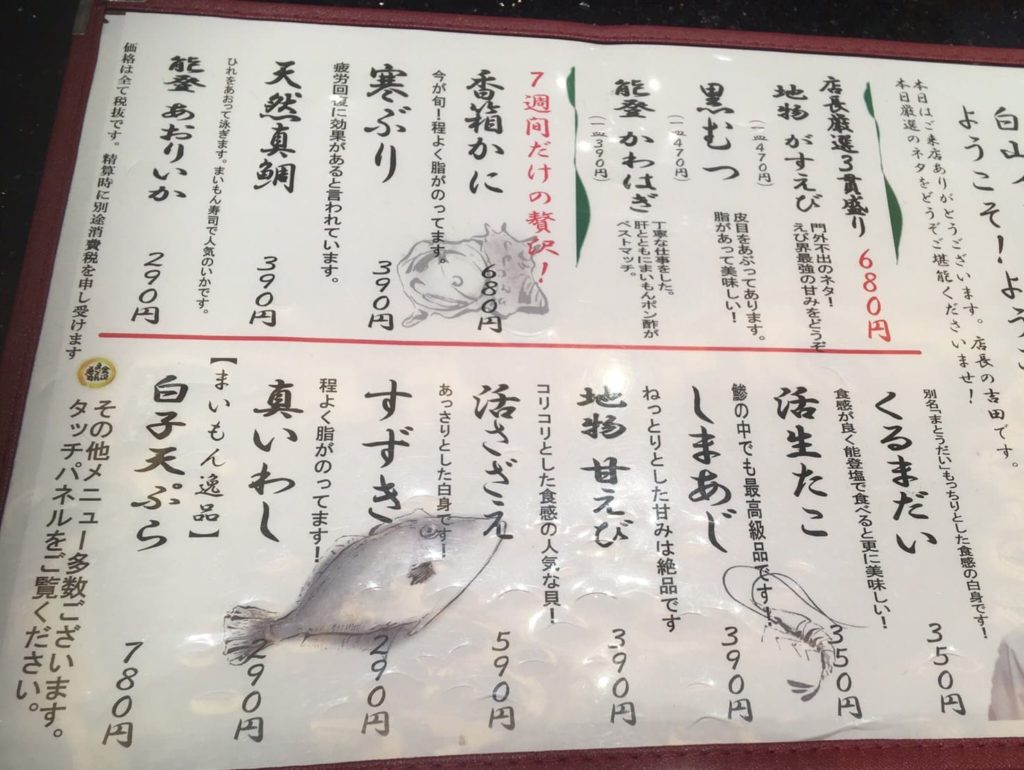 白山
ようこそ!よう
ようこそ!
本日はご来店ありがとうございます。店長の吉田です。
本日厳選のネタをどうぞご堪能くださいませ!
店長厳選3貫盛り 680円
地物 がすえび
(一皿470円)
門外不出のネタ!
えび界最強の甘みをどうぞ
黒むつ
(一皿470円)
皮目をあぶってあります。
脂があって美味しい!
能登 かわはぎ
(一皿390円)
丁寧な仕事をした。
肝とともにまいもんポン酢が
ベストマッチ。
7週間だけの贅沢!
香箱かに 680円
今が旬!程よく脂がのってます。
寒ぶり 390円
疲労回復に効果があると言われています。
天然真鯛 390円
ひれをあおって泳ぎます。まいもん寿司で人気のいかです。
能登 あおりいか 290円
価格は全て税抜です。精算時に別途消費税を申し受けます
別名「まとうだい」もっちりとした食感の白身です!
くるまだい 350円
食感が良く能登塩で食べると更に美味しい!
活生たこ 350円
鯵の中でも最高級品です!
しまあじ 390円
ねっとりとした甘みは絶品です
地物 甘えび 390円
コリコリとした食感の人気な貝!
活さざえ 590円
あっさりとした白身です!
すずき 290円
程よく脂がのってます!
真いわし 290円
【まいもん逸品】
白子天ぷら 780円
その他メニュー多数ございます。
タッチパネルをご覧ください。